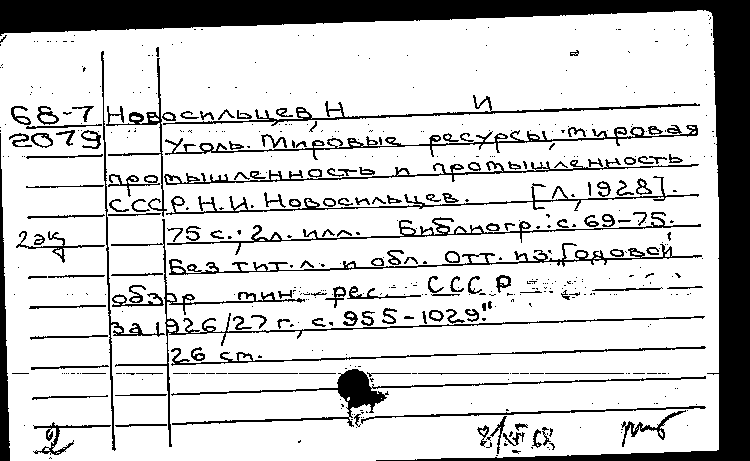 68-7 Новосильцев, Н И
2079 Уголь. Мировые ресурсы, мировая
промышленность и промышленность
СССР. Н. И. Новосильцев. [Л., 1928].
2 экз 75 с.; 2 л. илл. Библиогр.: с. 69-75.
Без тит. л. и обл. Отт. из: "Годовой
обзор мин. рес. СССР
за 1926/27 г., с. 955-1029."
26 см.
2 8/XII 68